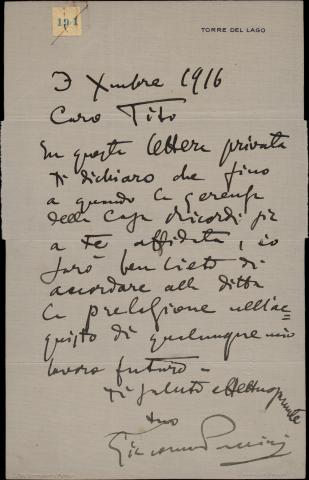 191
TORRE DEL LAGO
3 Xmbre 1916
Caro Tito
In questa lettera privata
ti dichiaro che fino
a quando la gerenza
della Casa Ricordi sia
a te affidata, io
sarò ben lieto di
accordare alla ditta
la prelazione nell'ac=
quisto di qualunque mio
lavoro futuro –
Ti saluto affettuosamente
tuo
Giacomo Puccini